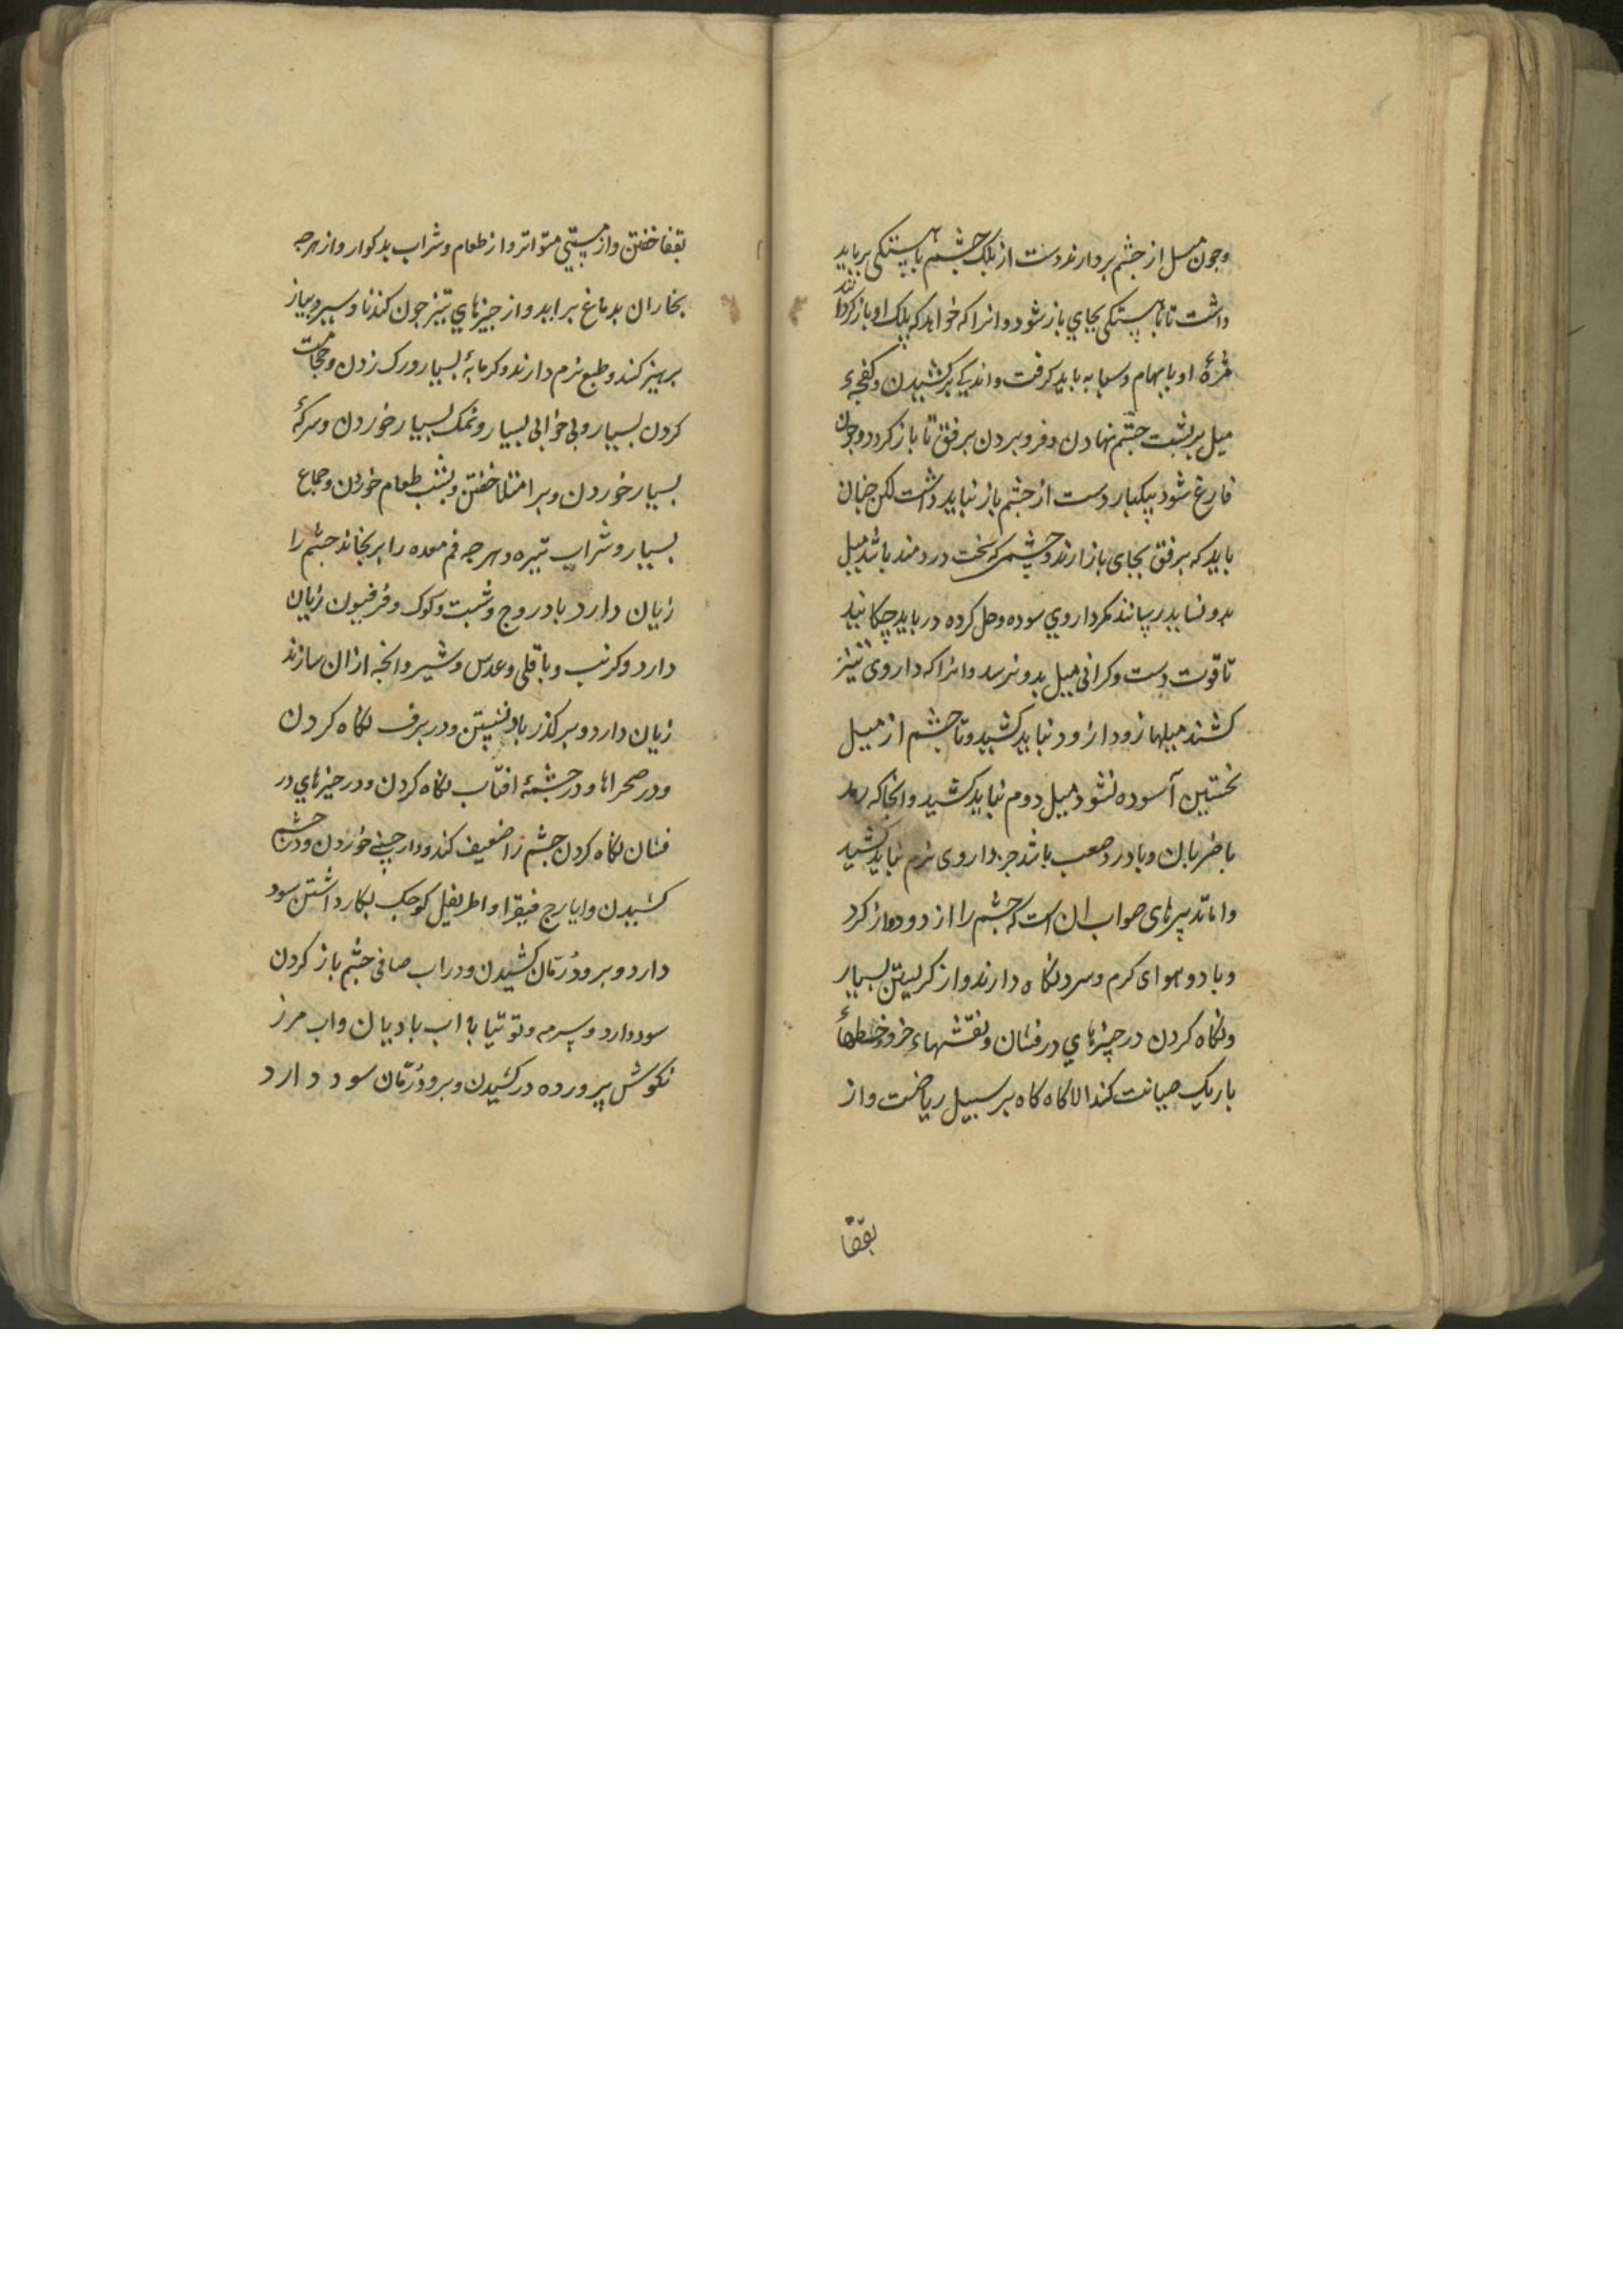 وجون میل از جشم بردارند دست از بلک جشم باهستکی بر باید
داشت تا باهستکی بجای باز شود وانرا که خواهد که بلک او باز کرداند
مژهٔ او بابهام وسبابه باید کرفت واندکی برکشیدن وکفجهٔ
میل بر بشت جشم نهادن وفرو بردن برفق تا باز کردد وجون
فارغ شود بیکبار دست از جشم باز نباید داشت لکن جنان
باید که برفق بجای باز ارند وجشمی که سخت دردمند باشد میل
بدو نشاید رسانند مکر داروی سوده وحل کرده در باید جکانید
تا قوت دست وکرانی میل بدو نرسد وانرا که داروی تیز
کشند میلها زودازود نباید کشید وتا جشم از میل
نخستین آسوده نشود میل دوم نباید کشید وانجا که رمد
با ضربان وبا درد صعب باشد جز داروی نرم نباید کشید
واما تدبیرهای صواب ان است که جشم را از دود واز کرد
وباد وهوای کرم وسرد نکاه دارند واز کریستن بسیار
ونکاه کردن در چیزهای درفشان ونقشهاء خرد وخطهاء
باریک صیانت کند الا کاه کاه بر سبیل ریاضت واز
بقفا
بقفا خفتن واز مستی متواتر واز طعام وشراب بدکوار واز هرجه
بخار ان بدماغ براید واز جیزهای تیز جون کندنا وسیر وبیاز
برهیز کند وطبع نرم دارند وکرمابهٔ بسیار ورک زدن وحجامت
کردن بسیار وبی خوابی بسیار ونمک بسیار خوردن وسرکهٔ
بسیار خوردن وبر امتلا خفتن وبشب طعام خوردن وجماع
بسیار وشراب تیره وهرجه فم معده را برنجاند جشم را
زیان دارد بادروج وشبت وکوک وفرفیون زیان
دارد وکرنب وباقلی وعدس وشیر وانجه ازان سازند
زیان دارد وبر کذر باد نشستن ودر برف نکاه کردن
ودر صحراها ودر جشمهٔ افتاب نکاه کردن ودر جیزهای در
فشان نکاه کردن جشم را ضعیف کند ودارچینی خوردن ودر جشم
کشیدن وایارج فیقرا واطریفل کوجک بکار داشتن سود
دارد وبرود رمّان کشیدن ودر اب صافی جشم باز کردن
سود دارد وسرمه وتوتیا به اب بادیان واب مرز
نکوش پرورده در کشیدن وبرود رمّان سود دارد